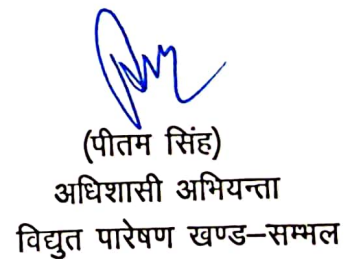 (पीतम सिंह)
अधिशासी अभियन्ता
विद्युत पारेषण खण्ड–सम्भल